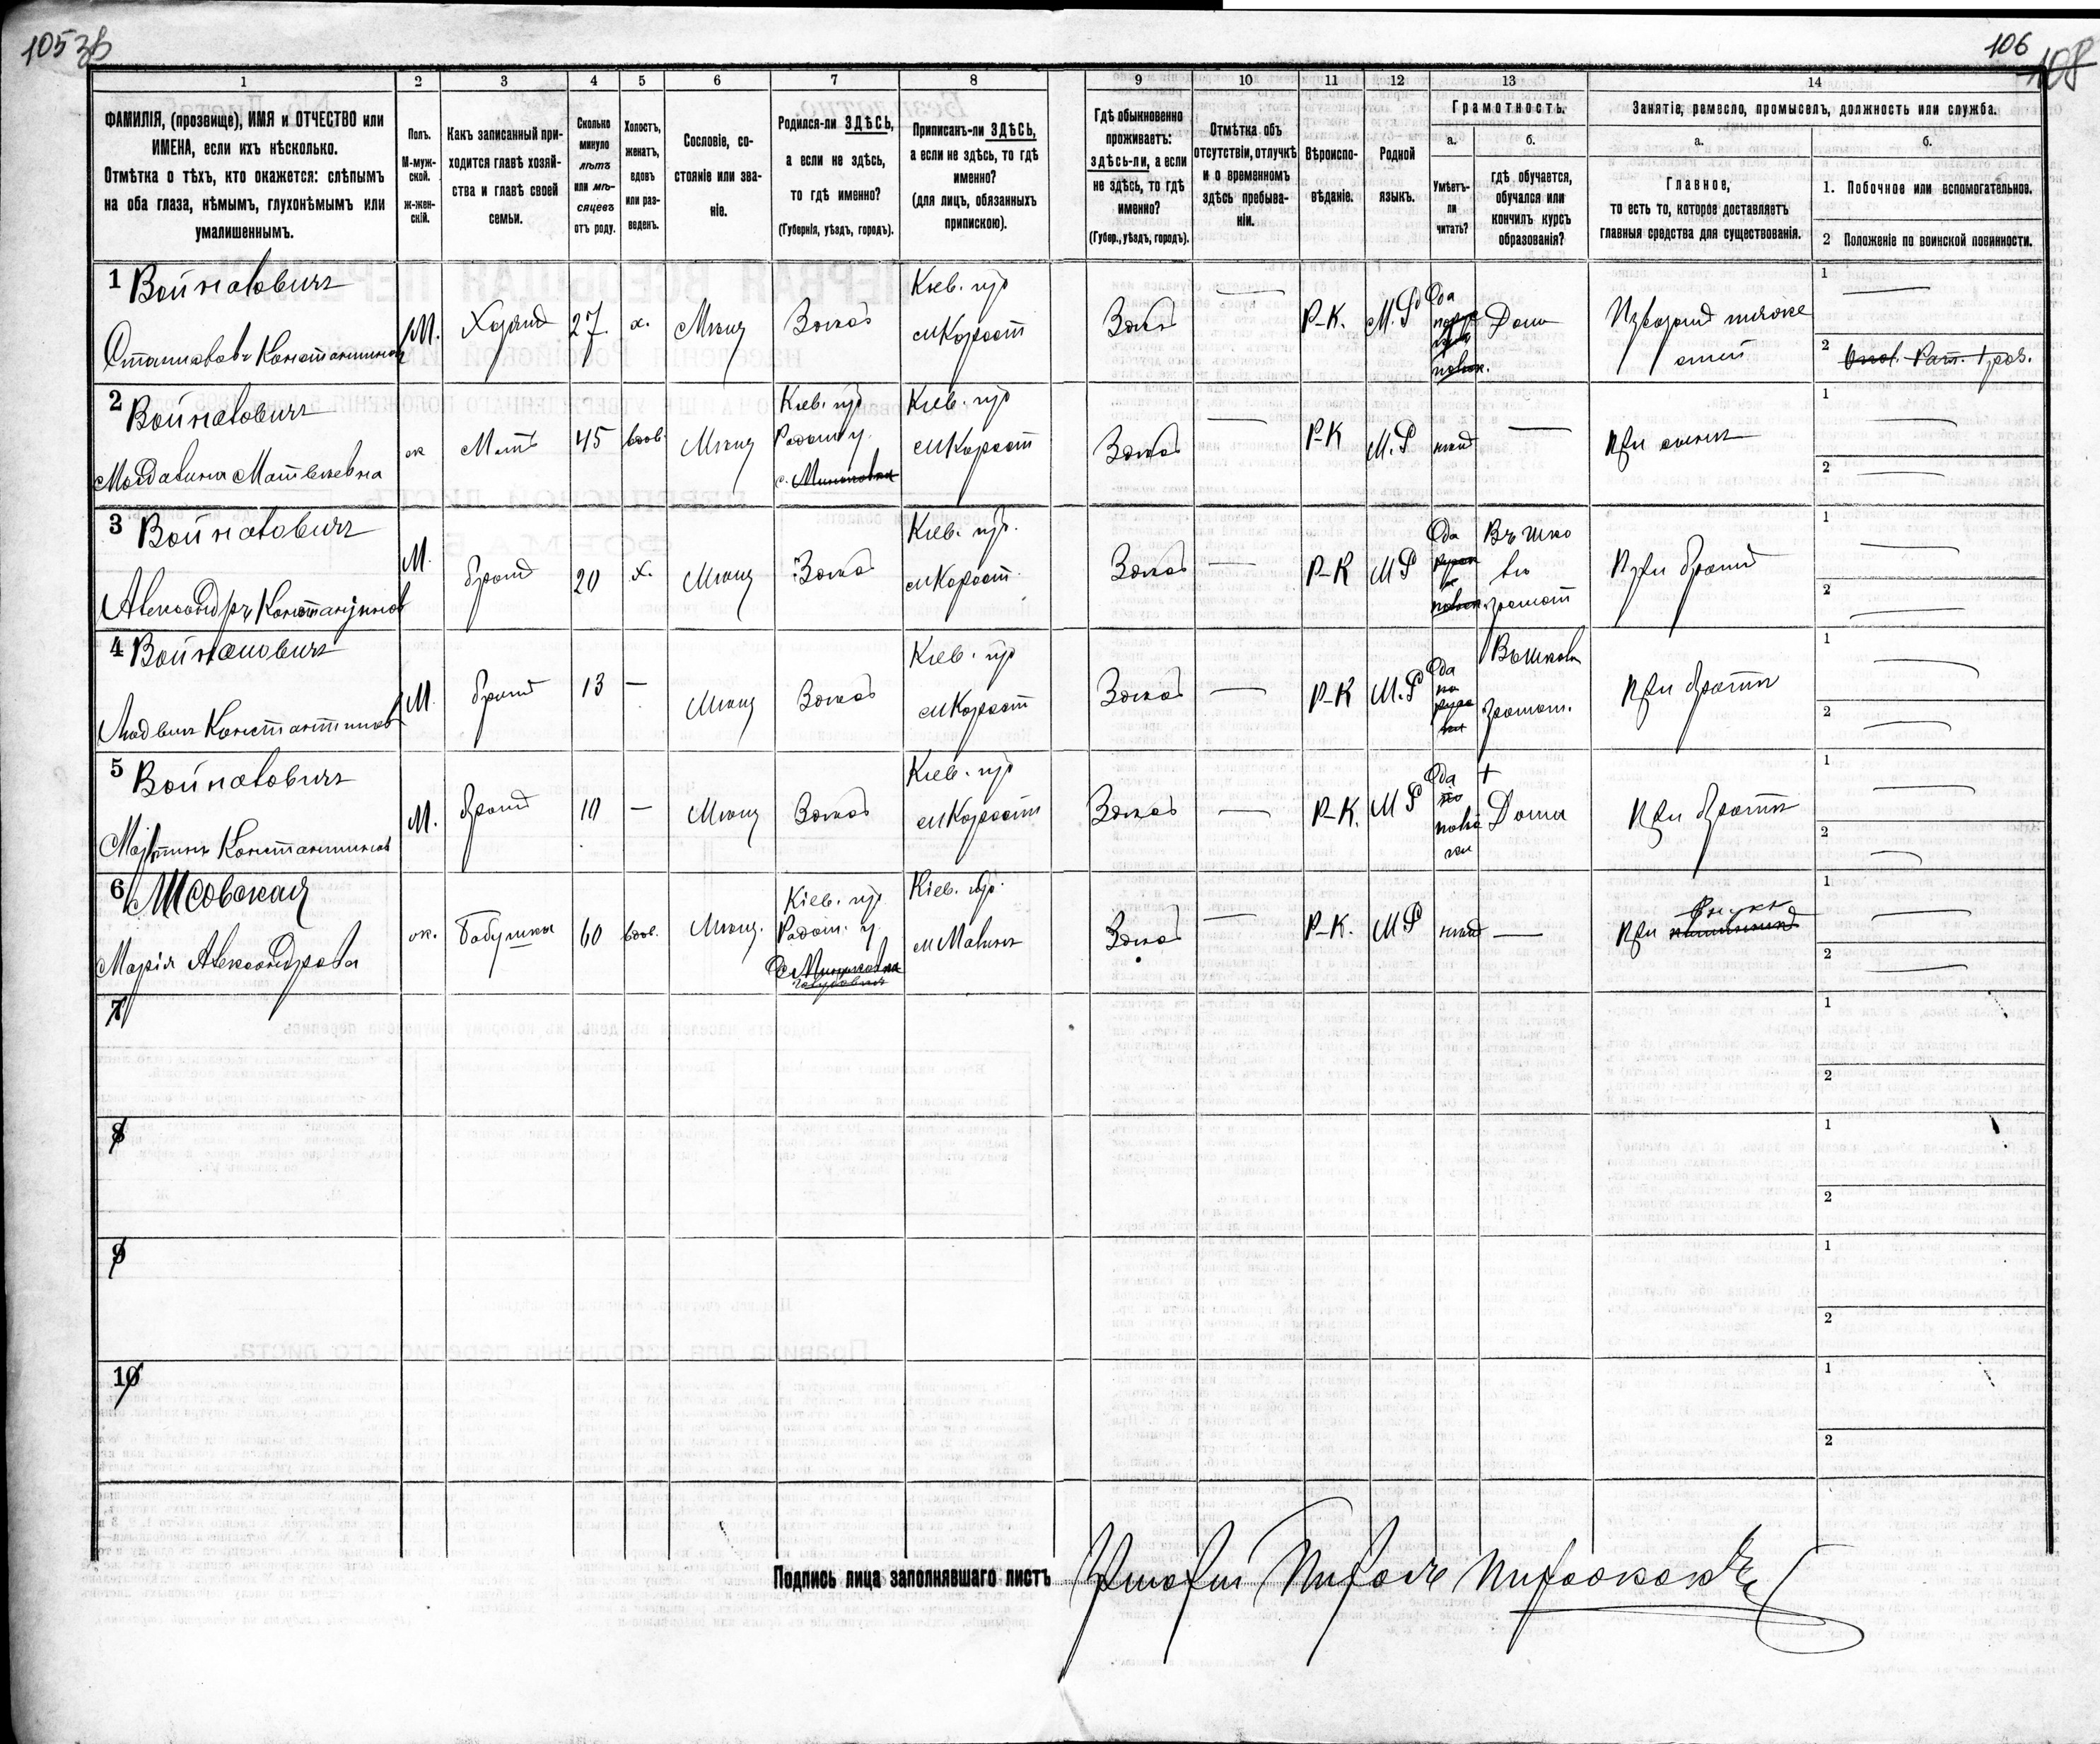 105 зв
106
108
1
2
3
4
5
6
7
8
9
10
11
12
13
14
ФАМИЛІЯ, (прозвище), ИМЯ и ОТЧЕСТВО или
ИМЕНА, если ихъ нѣсколько.
Отмѣтка о тѣхъ, кто окажется: слѣпымъ
на оба глаза, нѣмымъ, глухонѣмымъ или
умалишеннымъ.
Полъ.
М-муж-
ской.
ж-жен-
скій.
Какъ записанный при-
ходится главѣ хозяй-
ства и главѣ своей
семьи.
Сколько
минуло
лѣтъ
или мѣ-
сяцевъ
отъ роду.
Холостъ,
женатъ,
вдовъ
или раз-
веденъ.
Сословіе, со-
стояніе или зва-
ніе.
Родился-ли ЗДѢСЬ,
а если не здѣсь,
то гдѣ именно?
(Губернія, уѣздъ, городъ).
Приписанъ-ли ЗДѢСЬ,
а если не здѣсь, то гдѣ
именно?
(для лицъ, обязанныхъ
припискою).
Гдѣ обыкновенно
проживаетъ:
здѣсь-ли, а если
не здѣсь, то гдѣ
именно?
(Губер., уѣздъ, городъ).
Отмѣтка объ
отсутствіи, отлучкѣ
и о временномъ
здѣсь пребыва-
ніи.
Вѣроиспо-
вѣданіе.
Родной
языкъ.
Грамотность.
а.
Умѣетъ-
ли
читать?
б.
гдѣ обучается,
обучался или
кончилъ курсъ
образованія?
Занятіе, ремесло, промыселъ, должность или служба.
а.
Главное,
то есть то, которое доставляетъ
главныя средства для существованія.
б.
1. Побочное или вспомогательное.
2 Положеніе по воинской повинности.
1 Войналовичъ
Станиславъ Константиновъ
М.
27
х.
Мѣщ
Здѣсь
Кіев. губ
м Корост
Здѣсь
Р-К.
М. Р
Да
Дома
1
2
2 Войналовичъ
Матвѣевна
ж
Мать
45
вдов.
Мѣщ
Кіев. губ
Радом у.
Кіев. губ
м Корост
Здѣсь
Р-К
М. Р
нѣтъ
При сынѣ
1
2
3 Войналовичъ
Александръ Константинов
М.
братъ
20
х.
Мѣщ
Здѣсь
Кіев. губ.
м Корост.
Здѣсь
Р-К
М Р
Да
Въ шко
лѣ
грамот
При братѣ
1
2
4 Войналовичъ
Людвикъ Константинов
М.
братъ
13
Мѣщ
Здѣсь
Кіев. губ
м Корост
Здѣсь
Р-К
М. Р
Да
грамот.
при братѣ
1
2
5 Войналовичъ
Мартинъ Константинов
М.
братъ
10
Мѣщ
Здѣсь
Кіев. губ
м Корост
Здѣсь
Р-К.
М Р
Да
Дома
при братѣ
1
2
6
Марія Александрова
ж.
Бабушка
60
вдов.
Мѣщ.
Кіев. губ
Радом. у.
Кіев. губ.
м Малинъ
Здѣсь
Р-К.
М. Р
нѣтъ
при
внукѣ
1
2
7
1
2
8
1
2
9
1
2
10
1
2
Подпись лица заполнявшаго листъ